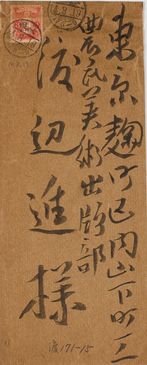 東京麹町区内山下町一ノ一
農民美術出版部
渡辺進様
渡171-15